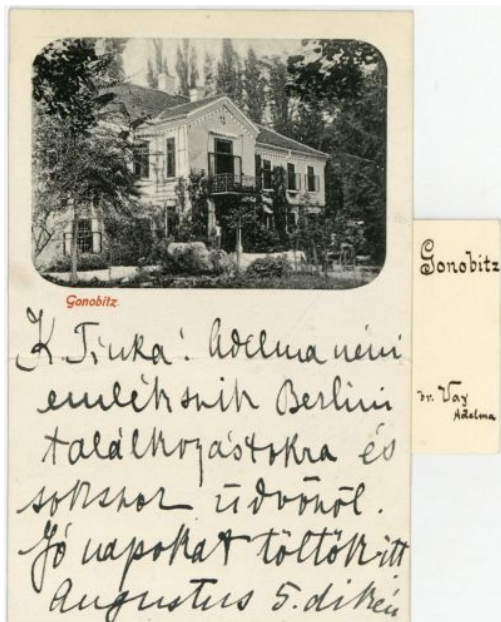 Gonobitz.
K Tinka! Adelma néni
emlékszik Berlini
találkozástokra és
sokszor üdvözöl.
Jó napokat töltök itt
Augustus 5. dikén
Gonobitz
br. Vay
Adelma